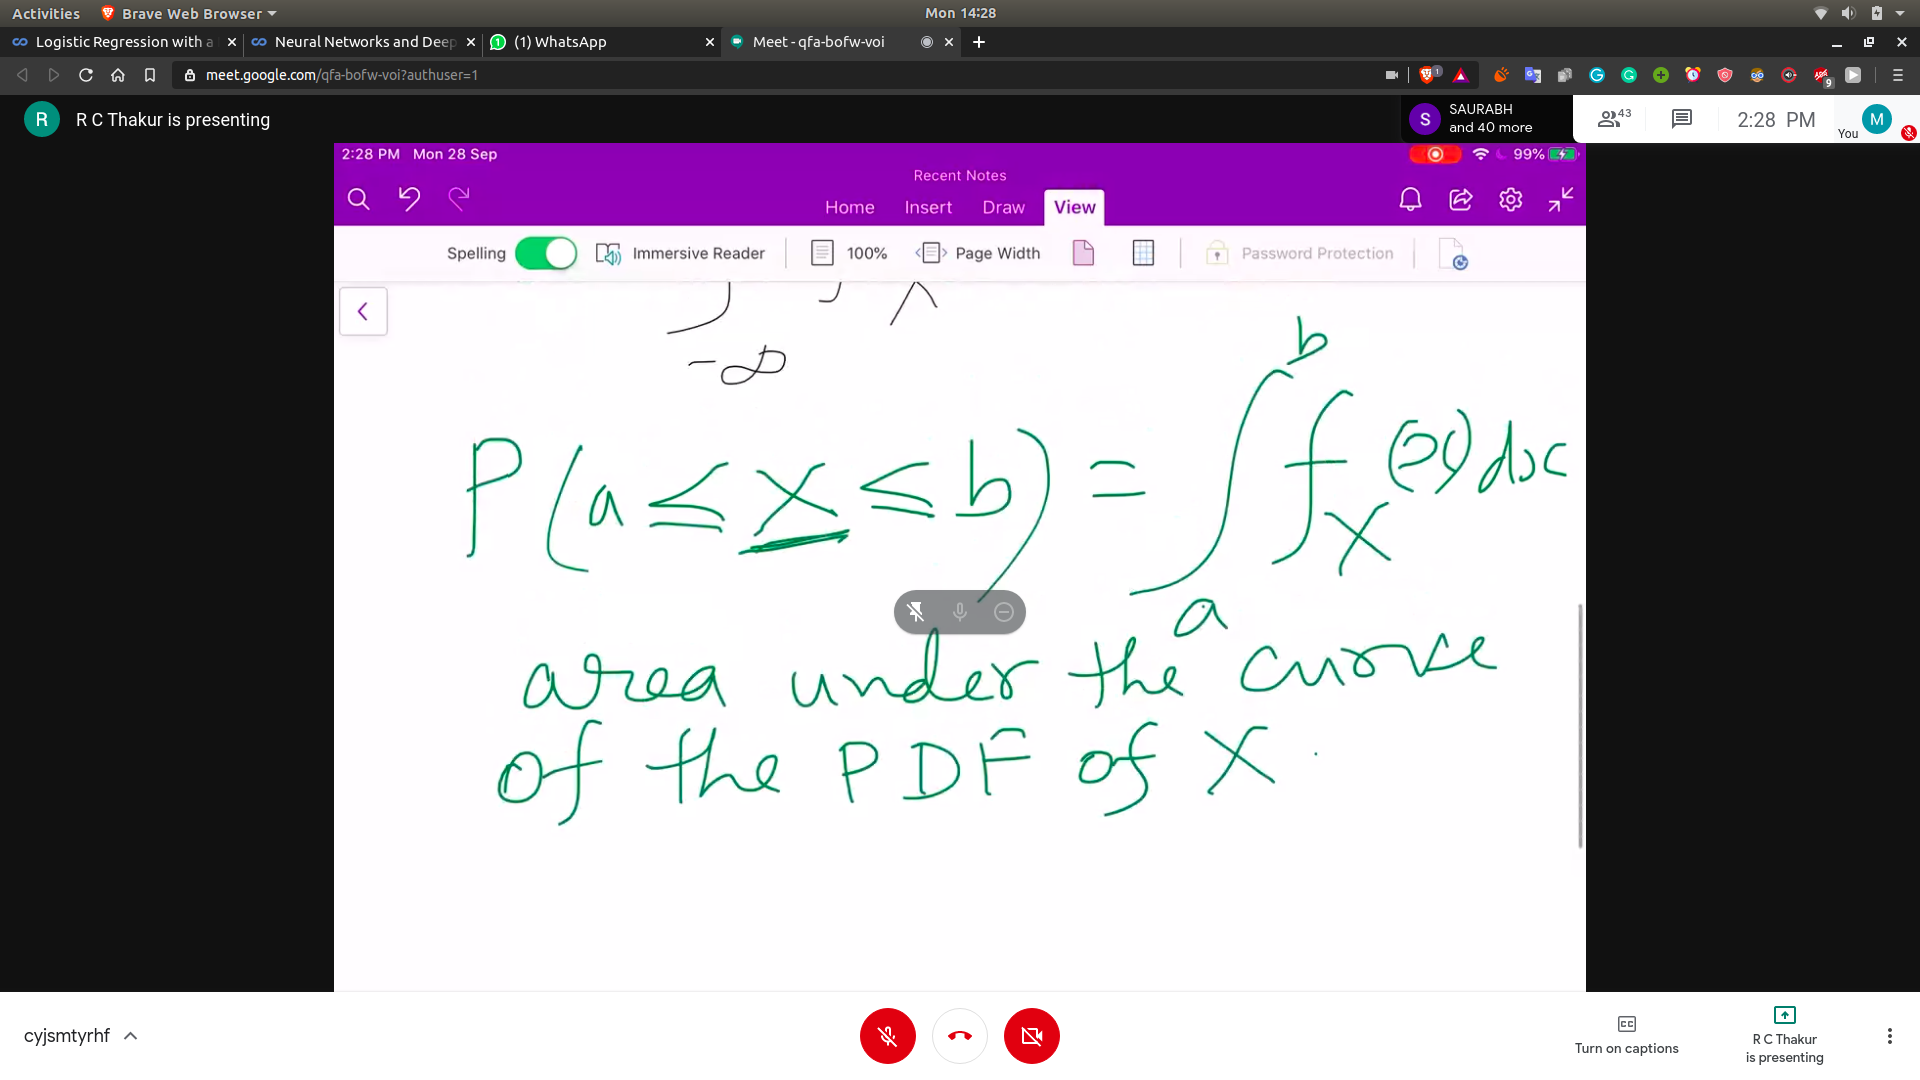 Activities Brave Web Browser Mon 14:28
Logistic Regression with a Neural Networks and Deep (1) WhatsApp Meet - qfa-bofw-voi
meet.google.com/qfa-bofw-voi?authuser=1
R R C Thakur is presenting S SAURABH and 40 more 43 2:28 PM You M
2:28 PM Mon 28 Sep 99%
Recent Notes
Home Insert Draw View
Spelling Immersive Reader 100% Page Width Password Protection
-∞
P(a ≤ x ≤ b) = ∫_a^b f_X(x) dx
area under the curve
of the PDF of X
cyjsmtyrhf Turn on captions R C Thakur is presenting